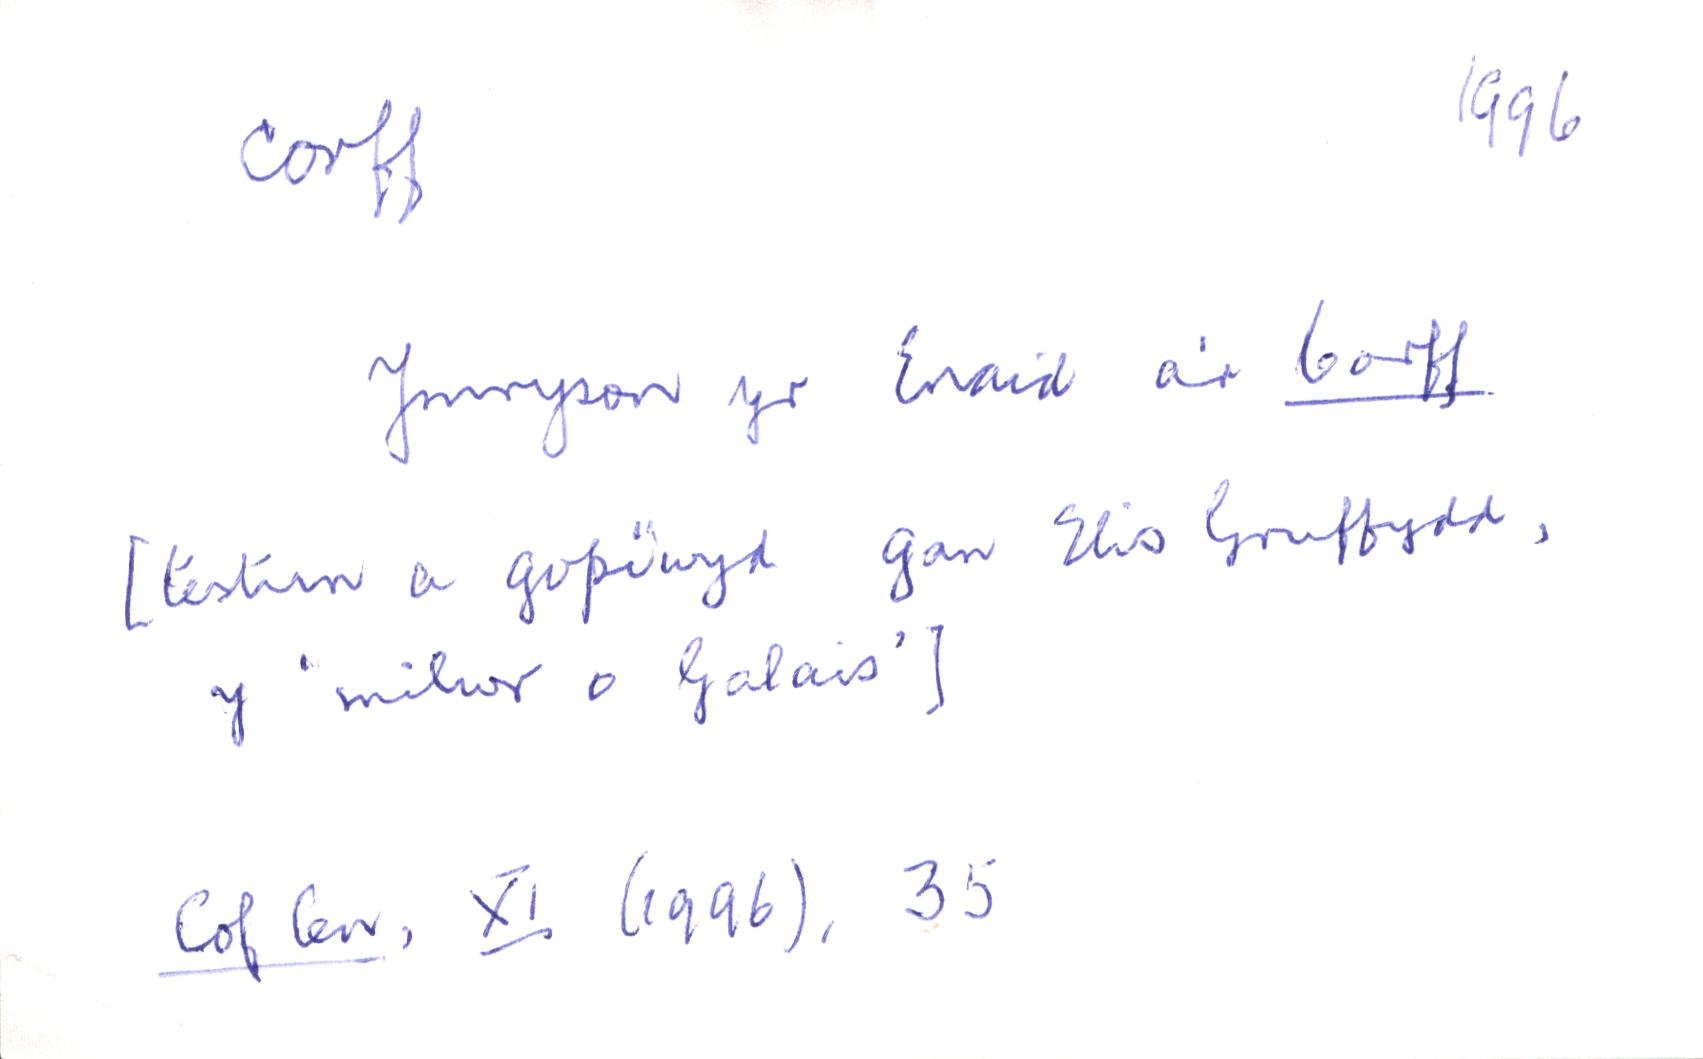 corff 1996
Ymryson yr Enaid a'r Corff
[testun a gopïwyd gan Elis Gruffydd,
y 'milwr o Galais']
Cof Cen, XI (1996), 35